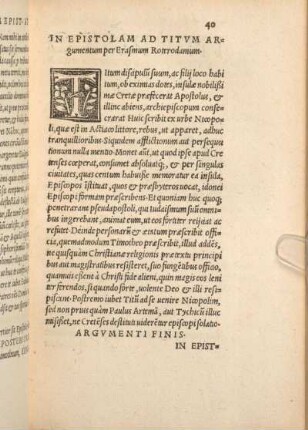 40
IN EPISTOLAM AD TITVM AR-
gumentum per Erasmum Roterodamum.
TItum discipulũ suum, ac filij loco habi
tum, ob eximias dotes, insulæ nobilissi
mæ Cretæ præfecerat Apostolus, &
illinc abiens, archiepiscopum conse-
crarat. Huic scribit ex vrbe Nicopo-
li, quæ est in Actiaco littore, rebus, ut apparet, adhuc
tranquillioribus. Siquidem afflictionum aut persequu
tionum nulla mentio. Monet aũt, ut quod ipse apud Cre
tenses cœperat, consumet absoluatq;, & per singulas
ciuitates, quas centum habuisse memoratur ea insula,
Episcopos īstituat, quos & præsbyteros uocat, idonei
Episcopi formam præscribens. Et quoniam huc quoq;
penetrarant pseudapostoli, qui Iudaismum suũ omni
bus ingerebant, animat eum, ut eos fortiter reijciat ac
refutet. Deinde personarũ & ætatum præscribit offi
cia, quemadmodum Timotheo præscribit, illud addēs,
ne quisquam Christianæ religionis prætextu principi
bus aut magistratibus resisteret, suo fungētibus officio,
quamuis essent à Christi fide alieni, quin magis eos leni
ter ferendos, si quando forte, uolente Deo & illi resi-
piscāt. Postremo iubet Titũ ad se uenire Nicopolim,
sed non prius quàm Paulus Artemā, aut Tychicũ illuc
misisset, ne Cretēses destituti viderētur episcopi solatio.
ARGVMENTI FINIS.
IN EPIST-